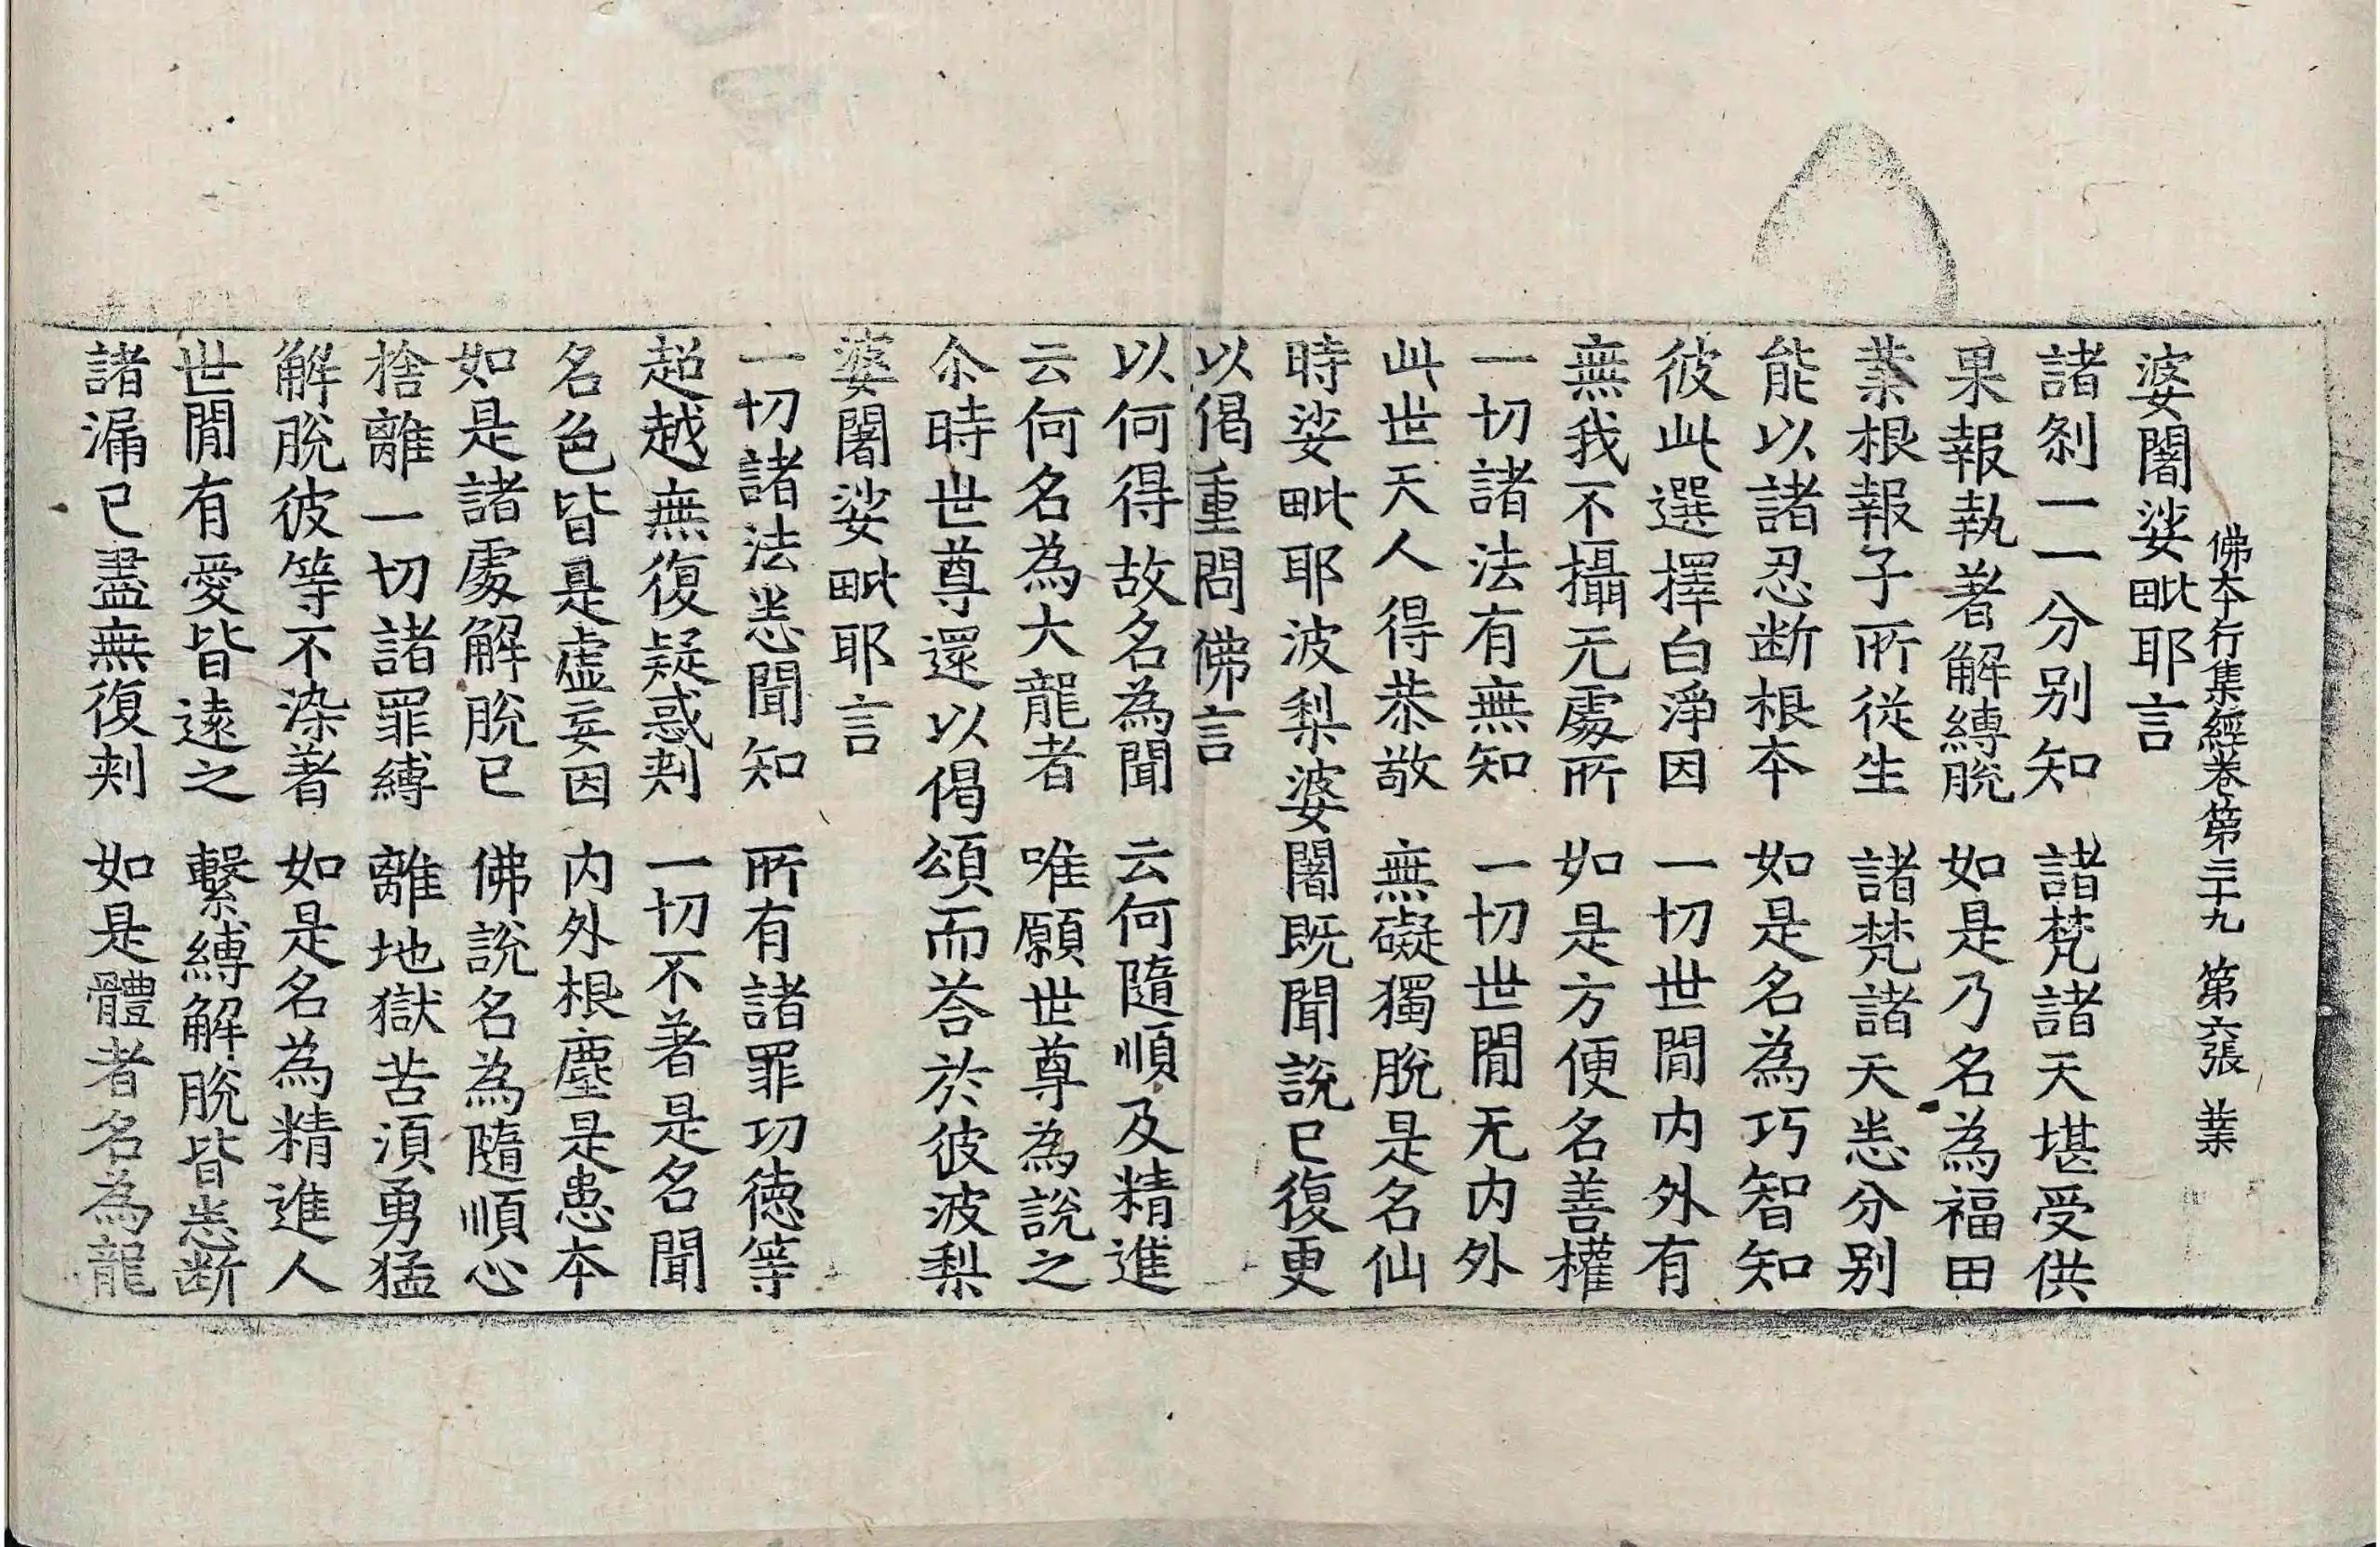 佛本行集經卷第三十九 第六張 業
婆闍娑毗耶言
諸刹一一分别知 諸梵諸天堪受供
果報執著解縛脫 如是乃名為福田
業根報子所從生 諸梵諸天悉分別
能以諸忍断根本 如是名為巧智知
彼此選擇白淨因 一切世閒内外有
無我不攝无處所 如是方便名善權
一切諸法有無知 一切世閒无内外
此世天人得恭敬 無礙獨脫是名仙
時娑毗耶波梨婆闍既聞說已復更
以偈重問佛言
以何得故名為聞 云何隨順及精進
云何名為大龍者 唯願世尊為說之
尒時世尊還以偈頌而荅於彼波梨
婆闍娑毗耶言
一切諸法悉聞知 所有諸罪功德等
超越無復疑惑刺 一切不著是名聞
名色皆是虛妄因 内外根塵是患本
如是諸處解脫已 佛說名為隨順心
捨離一切諸罪縛 離地獄苦須勇猛
解脫彼等不染著 如是名為精進人
世閒有愛皆遠之 繫縛解脫皆悉断
諸漏已盡無復刺 如是體者名為龍